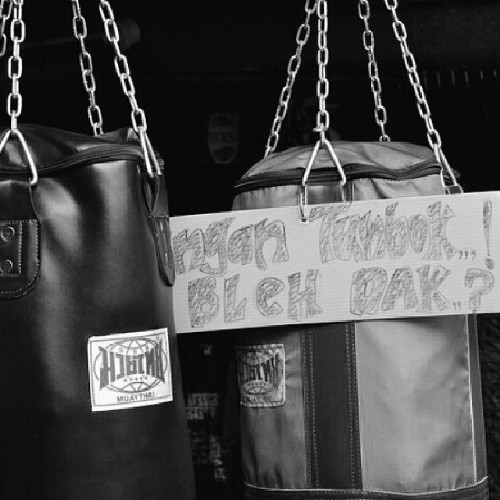 ngan Tumbok,,,!
BLEH DAK,,?
MUAYTHAI